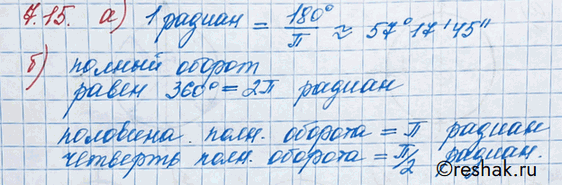 7.15. а) 1 радиан = 180°/π ≈ 57°17'45"
б) полный оборот
равен 360° = 2π радиан
половина полн. оборота = π радиан
четверть полн. оборота = π/2 радиан.
reshak.ru